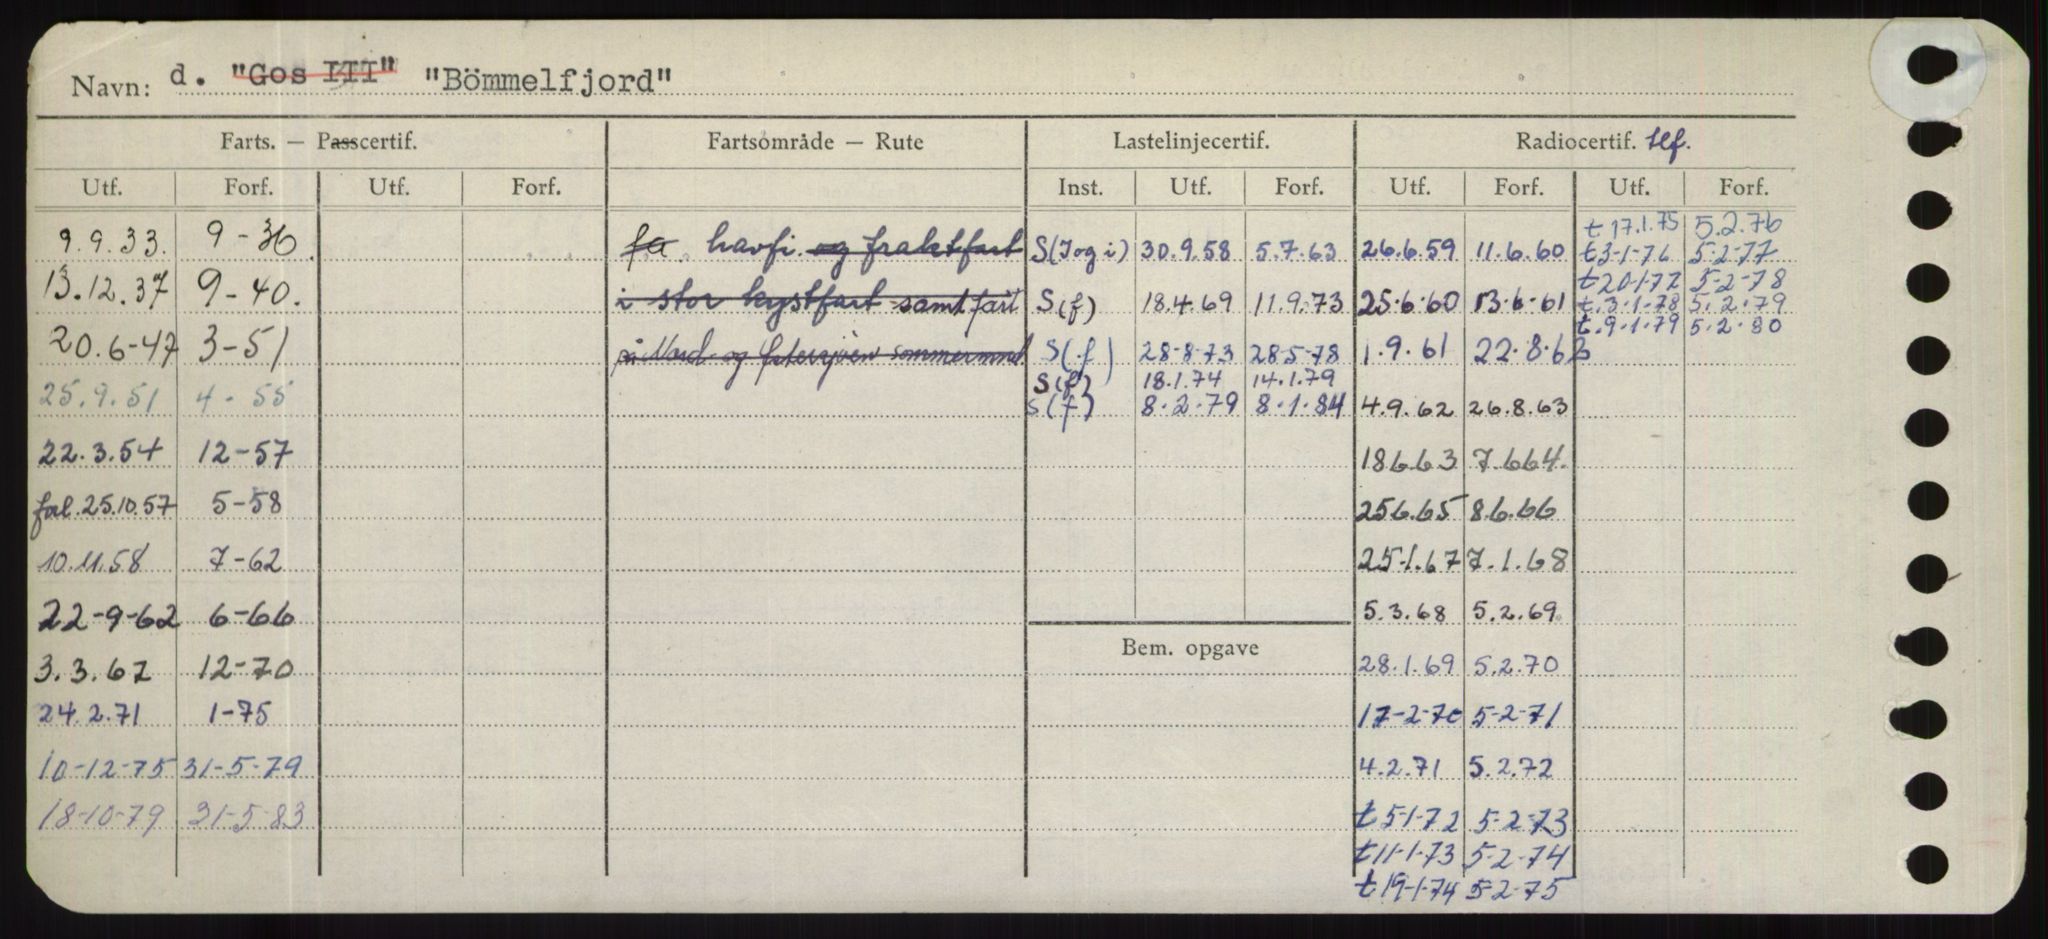 Navn: d. "Gos III" "Bömmelfjord"
Farts. — Passcertif. Fartsområde — Rute Lastelinjecertif. Radiocertif. tlf.
Utf. Forf. Utf. Forf. Inst. Utf. Forf. Utf. Forf. Utf. Forf.
t 17.1.75 5.2.76
9.9.33. 9-36 fa. havfi. og fraktfart S(I og i) 30.9.58 5.7.63 26.6.59 11.6.60 t3-1-76 5-2-77
t20-1-77 5-2-78
13.12.37 9-40. i stor kystfart samt fart S(f) 18.4.69 11.9.73 25.6.60 13.6.61 t.3-1-78 5.2.79
t.9-1-79 5.2.80
20.6-47 3-51 på Nord- og Østersjöen sommermnd S(f) 28-8-73 28-5-78 1.9.61 22.8.62
S(f) 18.1.74 14.1.79
25.9.51 4-55 S(f) 8.2.79 8.1.84 4.9.62 26.8.63
22.3.54 12-57 18663 7.664.
fal.25.10.57 5-58 256.65 8.6.66
10.11.58 7-62 25-1.67 7.1.68
22-9-62 6-66 5.3.68 5.2.69.
Bem. opgave
3.3.67 12-70 28.1.69 5.2.70
24.2.71 1-75 17-2-70 5-2-71
10-12-75 31-5-79 4.2.71 5.2.72
18-10-79 31-5-83 t5-1-72 5-2-73
t11-1-73 5-2-74
t19-1-74 5-2-75